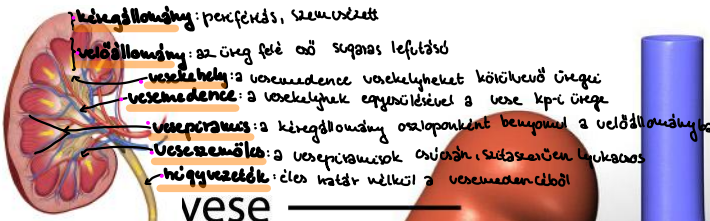 kéregállomány: perifériás, szemcsézett
velőállomány: az üreg felé eső sugaras lefutású
vesekehely: a vesemedence vesekelyheket körülvevő üregei
vesemedence: a vesekelyhek egyesülésével a vese kp-i ürege
vesepiramis: a kéregállomány oszloponként benyomul a velőállományba
veseszemölcs: a vesepiramisok csúcsán, szitaszerűen lyukacsos
húgyvezeték: éles határ nélkül a vesemedencéből
vese